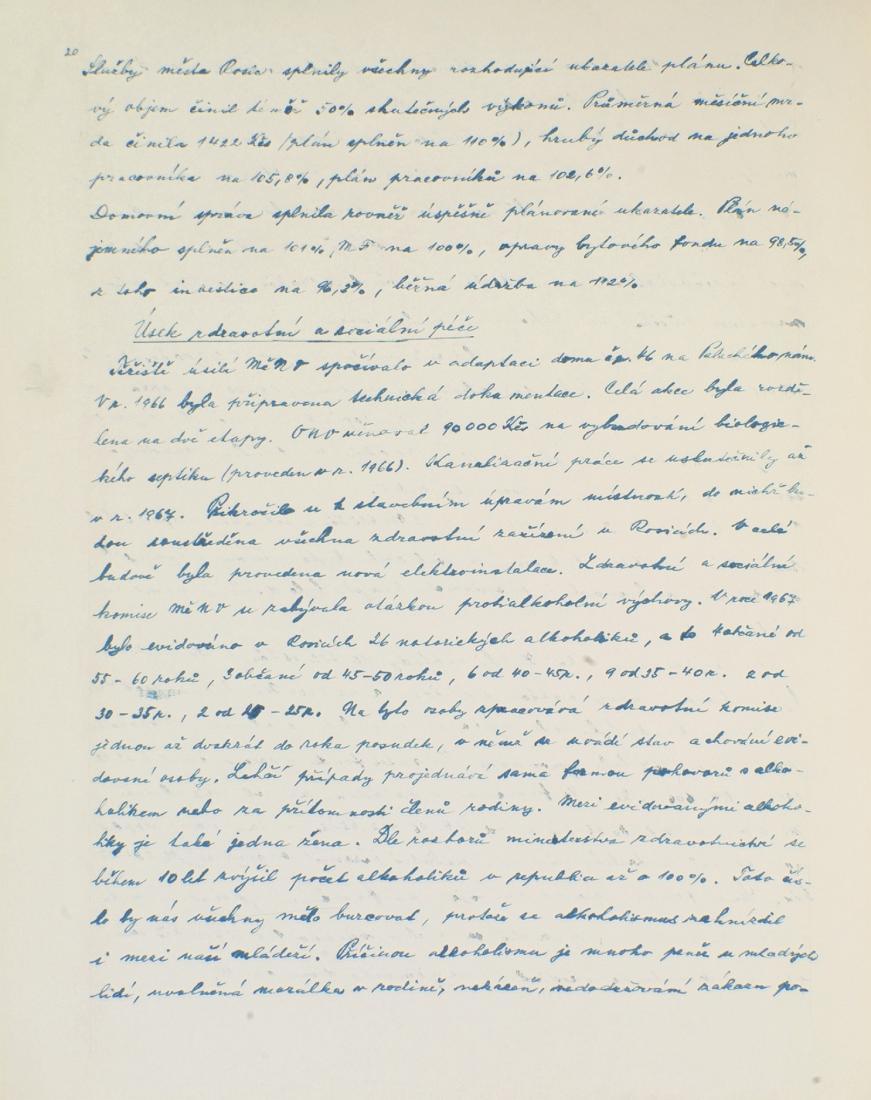 20
Služby města Rosic splnily všechny rozhodující ukazatele plánu. Celko-
vý objem činil téměř 50% skutečných výkonů. Průměrná měsíční mz-
da činila 1422 Kčs (plán splněn na 110%), hrubý důchod na jednoho
pracovníka na 105,8%, plán pracovníků na 102,6%.
Domovní správa splnila rovněž úspěšně plánované ukazatele. Plán ná-
jemného splněn na 101%, MF na 100%, opravy bytového fondu na 98,5%,
z toho investice na 96,3%, běžná údržba na 112%
Úsek zdravotní a sociální péče
Těžiště úsilí MěNV spočívalo v adaptaci domu čp. 46 na Palackého nám.
V r. 1966 byla připravena technická dokumentace. Celá akce byla rozdě-
lena na dvě etapy. ONV věnoval 90 000 Kčs na vybudování biologic-
kého septiku (proveden v r. 1966). Kanalizační práce se uskutečnily až
v r. 1967. Přikročilo se k stavebním úpravám místností, do nichž bu-
dou soustředěna všechna zdravotní zařízení v Rosicích. V celé
budově byla provedena nová elektroinstalace. Zdravotní a sociální
komise MěNV se zabývala otázkou protialkoholní výchovy. V roce 1967
bylo evidováno v Rosicích 26 notorických alkoholiků, a to 4 občané od
55-60 roků, 3 občani od 45-50 roků, 6 od 40-45r., 9 od 35-40r. 2 od
30-35r., 2 od -25r. Na tyto osoby zpracovává zdravotní komise
jednou až dvakrát do roka posudek, v němž se uvádí stav a chování evi-
dované osoby. Lehčí případy projednává sama formou pohovorů s alko-
holikem nebo za přítomnosti členů rodiny. Mezi evidovanými alkoho-
liky je také jedna žena. Dle rozborů ministerstva zdravotnictví se
během 10 let zvýšil počet alkoholiků v republice až o 100%. Toto čís-
lo by nás všechny mělo burcovat, protože se alkoholismus zahnízdil
i mezi naší mládeží. Příčinou alkoholismu je mnoho peněz u mladých
lidí, uvolněná morálka v rodině, nekázeň, nedodržování zákazu po-